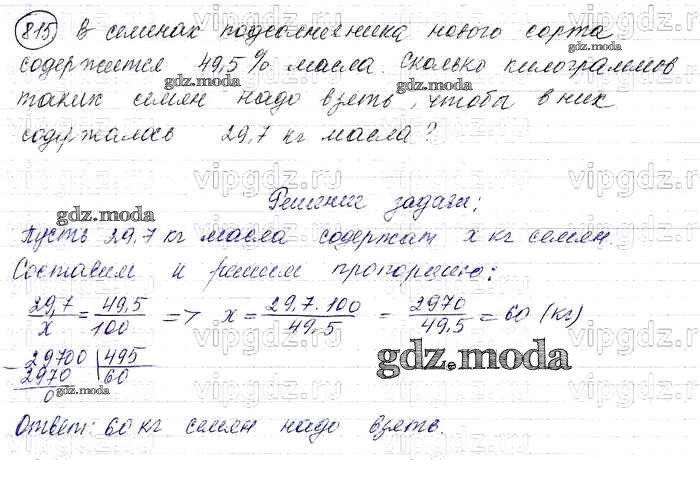 815 В семенах подсолнечника нового сорта
содержится 49,5 % масла. Сколько килограммов
таких семян надо взять, чтобы в них
содержалось 29,7 кг масла?
Решение задачи:
Пусть 29,7 кг масла содержат x кг семян.
Составим и решим пропорцию:
29,7/x = 49,5/100 => x = 29,7·100/49,5 = 2970/49,5 = 60 (кг)
29700 | 495
2970 60
0
Ответ: 60 кг семян надо взять.
gdz.moda
gdz.moda
gdz.moda
gdz.moda
gdz.moda
vipgdz.ru
vipgdz.ru
vipgdz.ru
vipgdz.ru